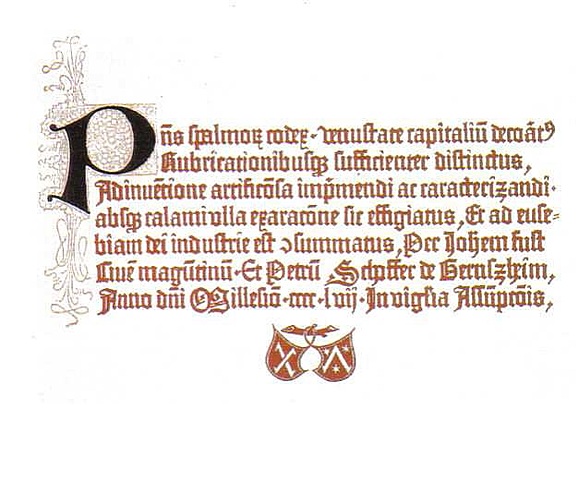 Pn̄s spalmoꝝ codex · venustate capitaliū decoātꝰ
Rubricationibusqꝫ sufficienter distinctus,
Adinuētione artificōsa imp̄mendi ac caracterizandi·
absqꝫ calami vlla exaracōne sic effigiatus, Et ad euse-
biam dei industrie est ↄsummatus, Per Joh̄em fust
Ciuē magūtinū · Et Petrū Schoffer de Gernszheim,
Anno dn̄i Millesīo · cccc · lvij · In vigl̄ia Assūpcōis,